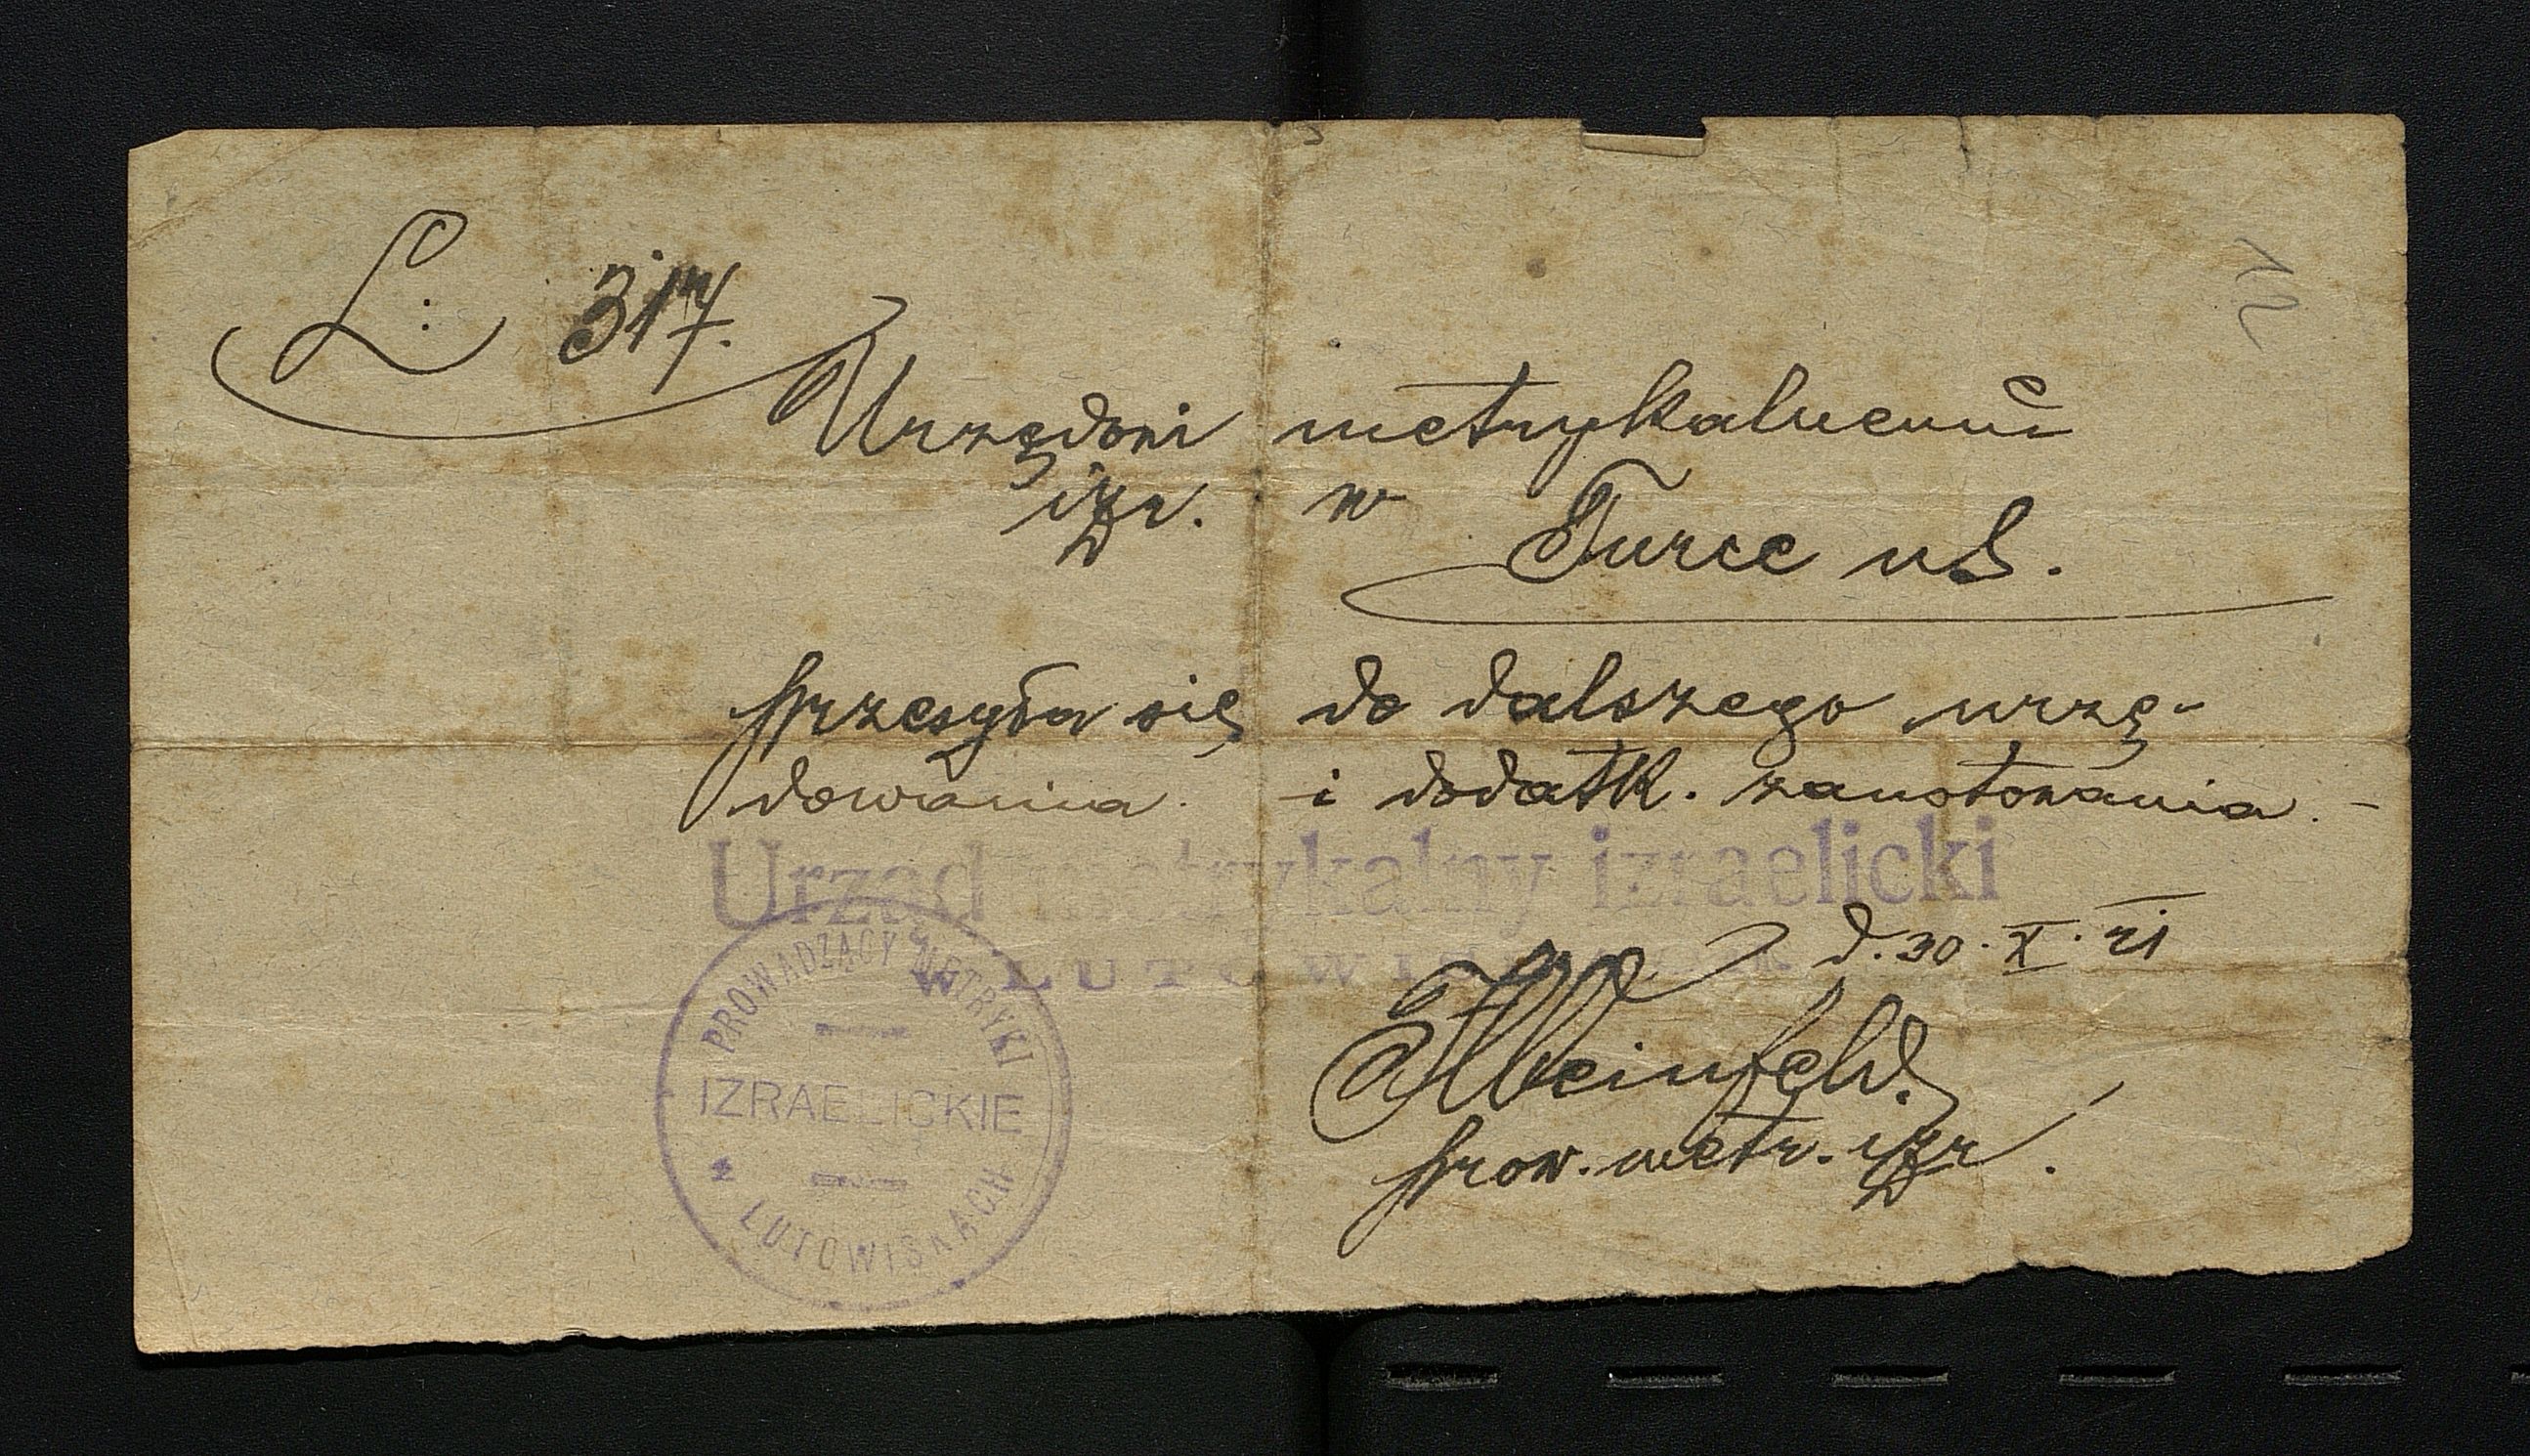 12
L: 317.
Urzędowi metrykalnemu
izr. w
Turce n/S.
przesyła się do dalszego urzę-
dowania i dodatk. zanotowania. -
Urząd metrykalny izraelicki
W LUTOWISKACH
d. 30. X. 21
Weinfeld
prow. metr. izr.
PROWADZĄCY METRYKI
IZRAELICKIE
W LUTOWISKACH